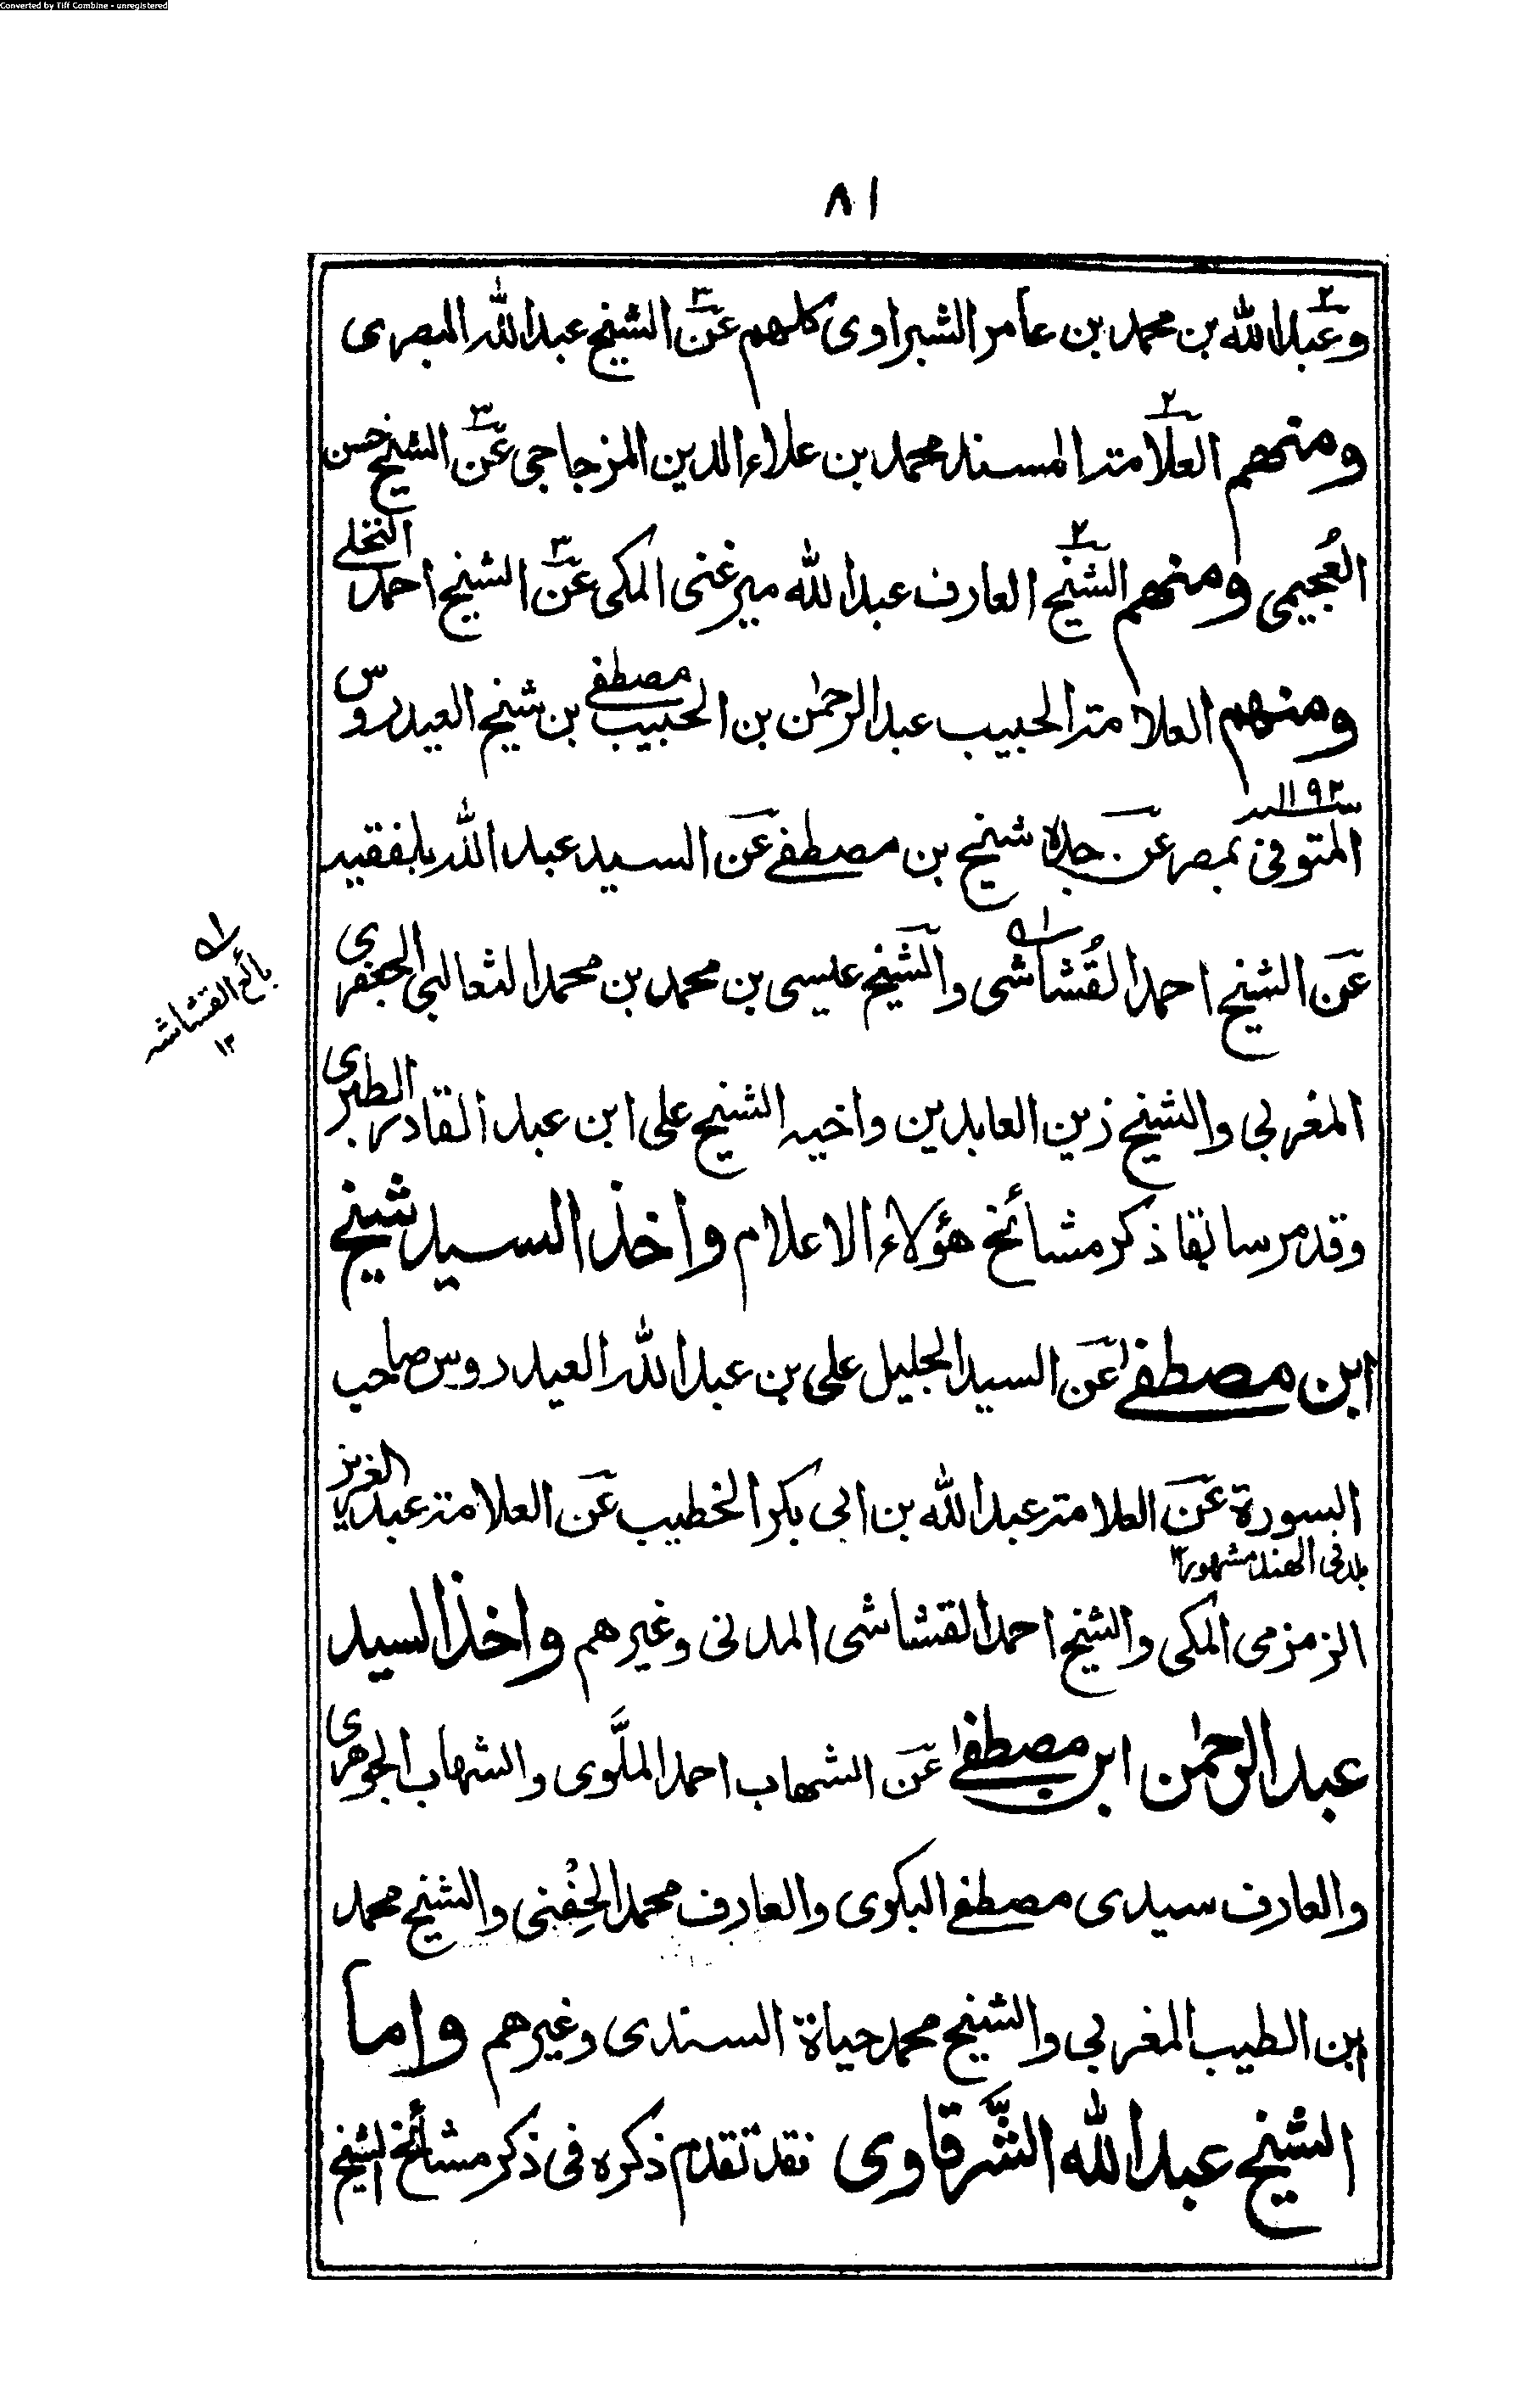 Converted by Tiff Combine - unregistered
٨١
وعبدالله بن محمد بن عامر الشبراوى كلهم عن الشيخ عبدالله البصرى
ومنهم العلامة المسند محمد بن علاء الدين المزجاجى عن الشيخ حسن
العُجيمى ومنهم الشيخ العارف عبدالله ميرغنى المكى عن الشيخ احمد النخلى
ومنهم العلامة الحبيب عبدالرحمٰن بن الحبيب مصطفى بن شيخ العيدروس
المتوفى بمصر سنة ١١٩٢ عن جده شيخ بن مصطفى عن السيد عبدالله بلفقيه
عن الشيخ احمد القُشاشى والشيخ عيسى بن محمد بن محمد الثعالبى الجعفرى
المغربى والشيخ زين العابدين واخيه الشيخ على ابن عبد القادر الطبرى
وقد مر سابقا ذكر مشائخ هؤلاء الاعلام واخذ السيد شيخ
ابن مصطفى عن السيد الجليل على بن عبدالله العيدروس صاحب
السورة عن العلامة عبدالله بن ابى بكر الخطيب عن العلامة عبدالعزيز
بلد فى الهند مشهور ١٢
الزمزمى المكى والشيخ احمد القشاشى المدنى وغيرهم واخذ السيد
عبدالرحمٰن ابن مصطفى عن الشهاب احمد الملَّوى والشهاب الجوهرى
والعارف سيدى مصطفى البكرى والعارف محمد الحِفْنى والشيخ محمد
ابن الطيب المغربى والشيخ محمد حياة السندى وغيرهم واما
الشيخ عبدالله الشَّرقاوى فقد تقدم ذكره فى ذكر مشائخ الشيخ
بائع القشاشه
١٢